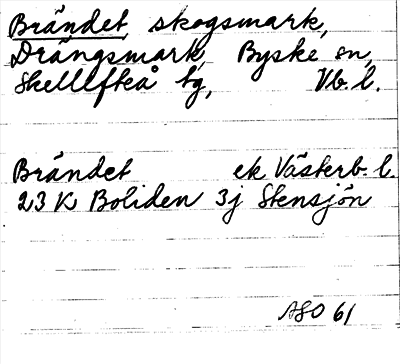 Brändet, skogsmark,
Drängsmark, Byske sn,
Skellefteå tg, Vb. l.
Brändet ek Västerb. l.
23 K Boliden 3j Stensjön
ASO 61